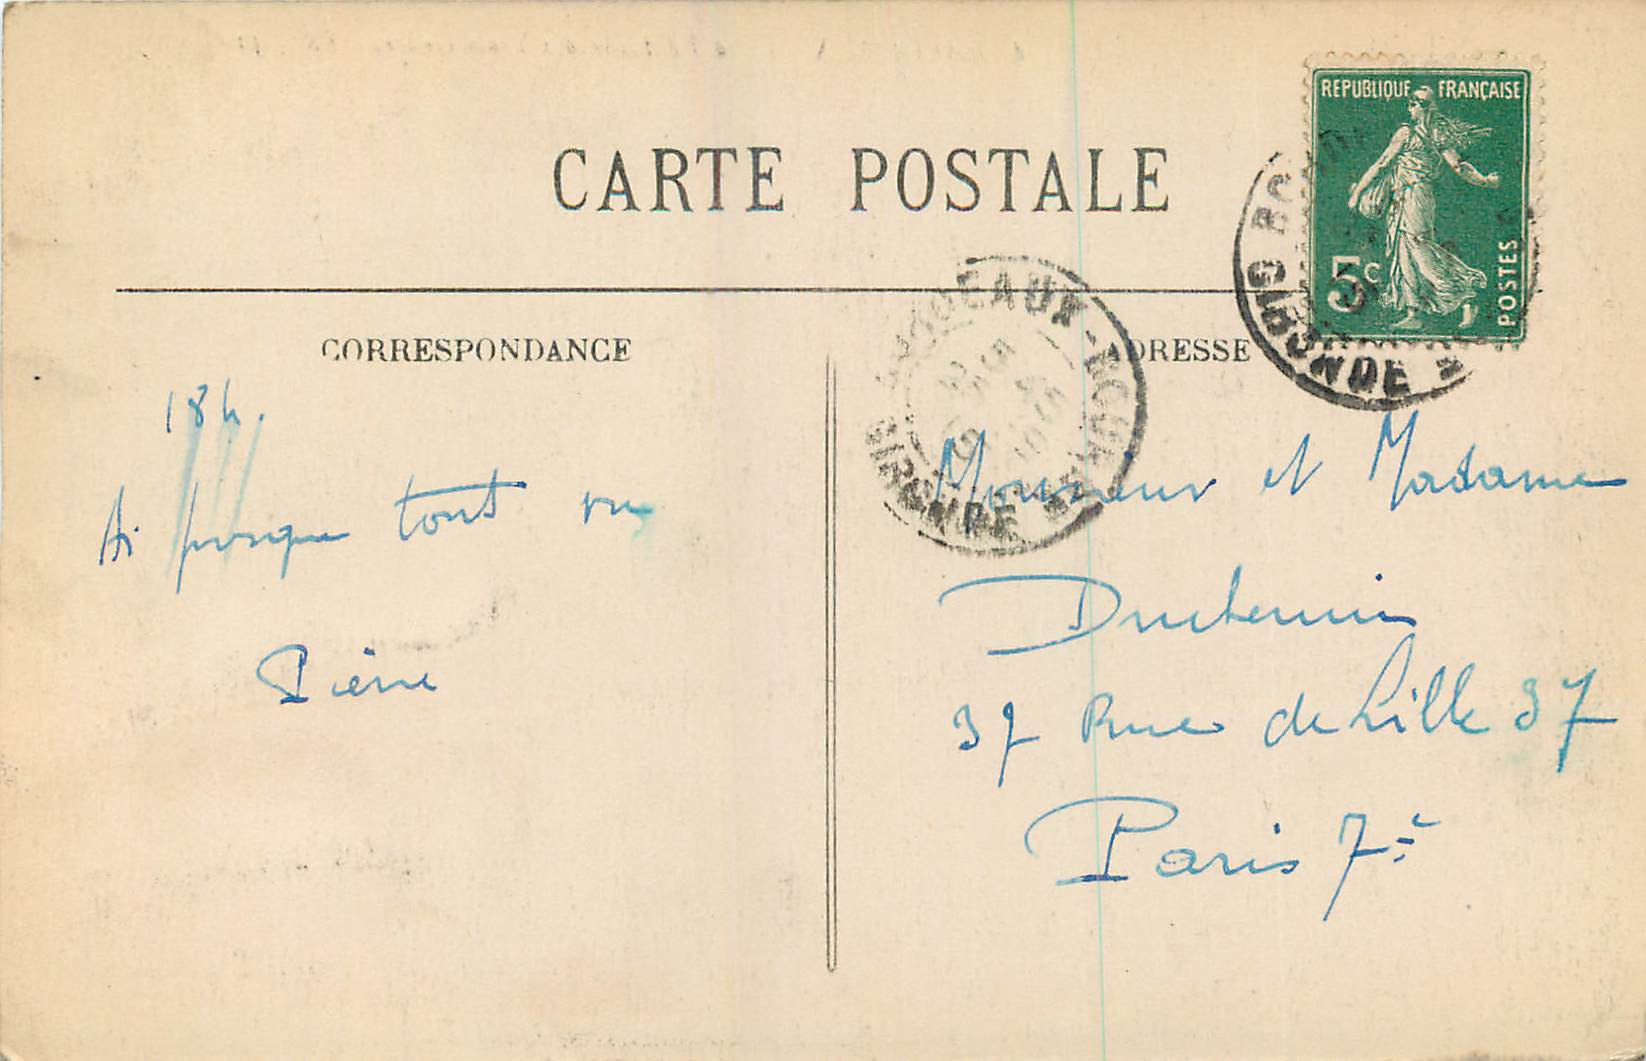 CARTE POSTALE
REPUBLIQUE FRANÇAISE
5c
POSTES
BORDEAUX-BOURSE
GIRONDE
GIRONDE
CORRESPONDANCE
ADRESSE
18h.
Ai presque tout vu
Pierre
Monsieur et Madame
Duchemin
37 Rue de Lille 37
Paris 7e